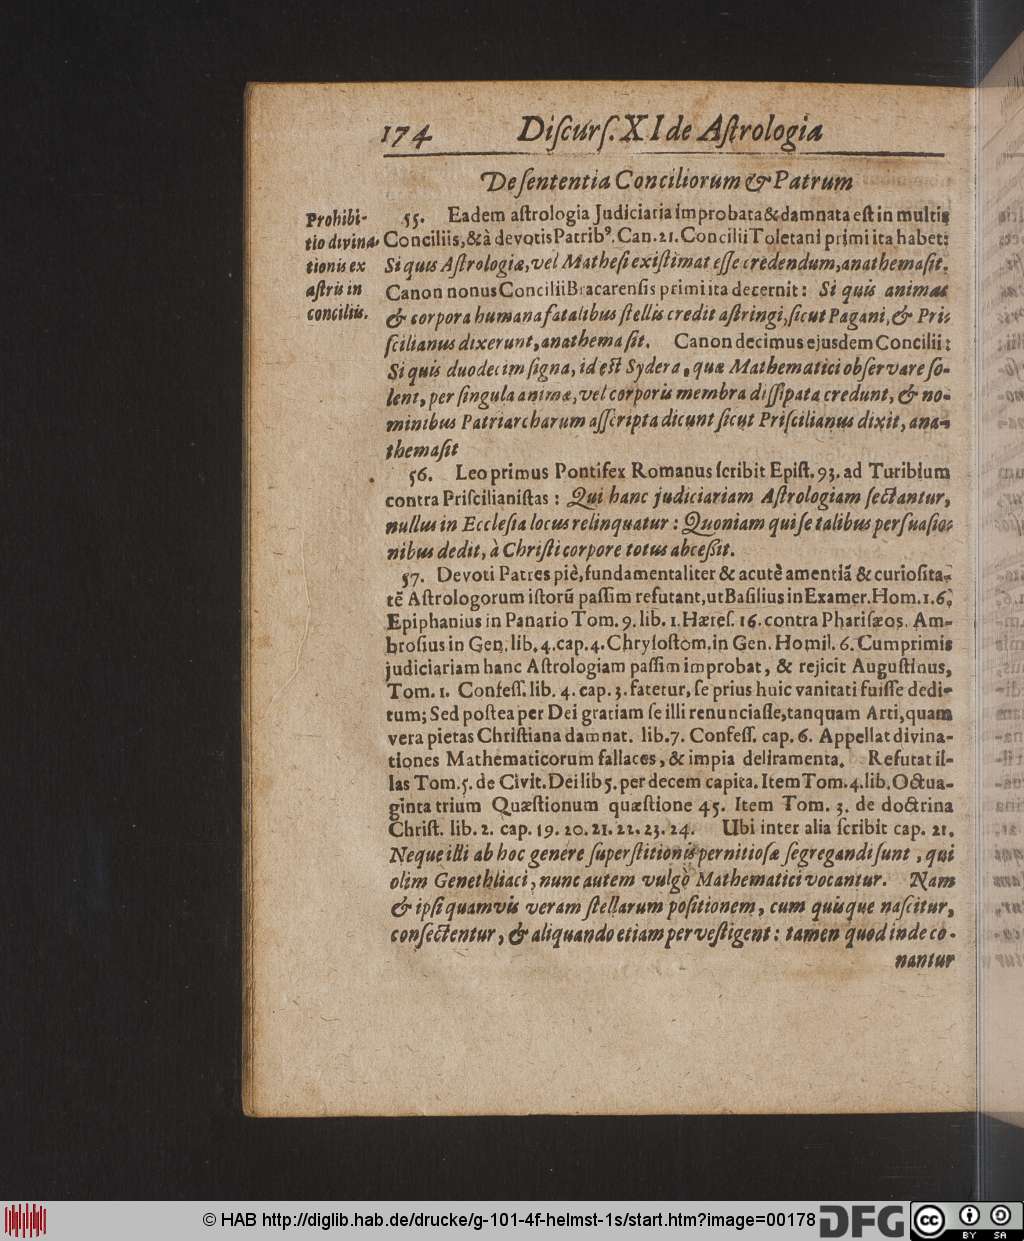 174 Diſcurſ. XI de Aſtrologia
De ſententia Conciliorum & Patrum
Prohibi-
tio divina-
tionis ex
aſtris in
conciliis.
55. Eadem aſtrologia Judiciaria improbata & damnata eſt in multis
Conciliis, & à devotis Patribꝰ. Can. 21. Concilii Toletani primi ita habet:
Si quis Aſtrologiæ, vel Matheſi exiſtimat eſſe credendum, anathema ſit.
Canon nonus Concilii Bracarenſis primi ita decernit: Si quis animas
& corpora humana fatalibus ſtellis credit aſtringi, ſicut Pagani, & Pri-
ſcilianus dixerunt, anathema ſit. Canon decimus ejusdem Concilii:
Si quis duodecim ſigna, id eſt Sydera, quæ Mathematici obſervare ſo-
lent, per ſingula animæ, vel corporis membra diſſipata credunt, & no-
minibus Patriarcharum aſſcripta dicunt ſicut Priſcilianus dixit, ana-
thema ſit
56. Leo primus Pontifex Romanus ſcribit Epiſt. 93. ad Turibium
contra Priſcilianiſtas: Qui hanc judiciariam Aſtrologiam ſectantur,
nullus in Eccleſia locus relinquatur: Quoniam qui ſe talibus perſuaſio-
nibus dedit, à Chriſti corpore totus abceßit.
57. Devoti Patres piè, fundamentaliter & acutè amentiã & curioſita-
tẽ Aſtrologorum iſtorũ paſſim refutant, ut Baſilius in Examer. Hom. 1. 6.
Epiphanius in Panario Tom. 9. lib. 1. Hæreſ. 16. contra Phariſæos. Am-
broſius in Gen. lib. 4. cap. 4. Chryſoſtom. in Gen. Homil. 6. Cumprimis
judiciariam hanc Aſtrologiam paſſim improbat, & rejicit Auguſtinus,
Tom. 1. Confeſſ. lib. 4. cap. 3. fatetur, ſe prius huic vanitati fuiſſe dedi-
tum; Sed poſtea per Dei gratiam ſe illi renunciaſſe, tanquam Arti, quam
vera pietas Chriſtiana damnat. lib. 7. Confeſſ. cap. 6. Appellat divina-
tiones Mathematicorum fallaces, & impia deliramenta. Refutat il-
las Tom. 5. de Civit. Dei lib 5. per decem capita. Item Tom. 4. lib. Octua-
ginta trium Quæſtionum quæſtione 45. Item Tom. 3. de doctrina
Chriſt. lib. 2. cap. 19. 20. 21. 22. 23. 24. Ubi inter alia ſcribit cap. 21.
Neque illi ab hoc genere ſuperſtitionis pernitioſæ ſegregandi ſunt, qui
olim Genethliaci, nunc autem vulgò Mathematici vocantur. Nam
& ipſi quamvis veram ſtellarum poſitionem, cum quisque naſcitur,
conſectentur, & aliquando etiam perveſtigent: tamen quod inde co-
nantur
© HAB http://diglib.hab.de/drucke/g-101-4f-helmst-1s/start.htm?image=00178
DFG
cc BY SA